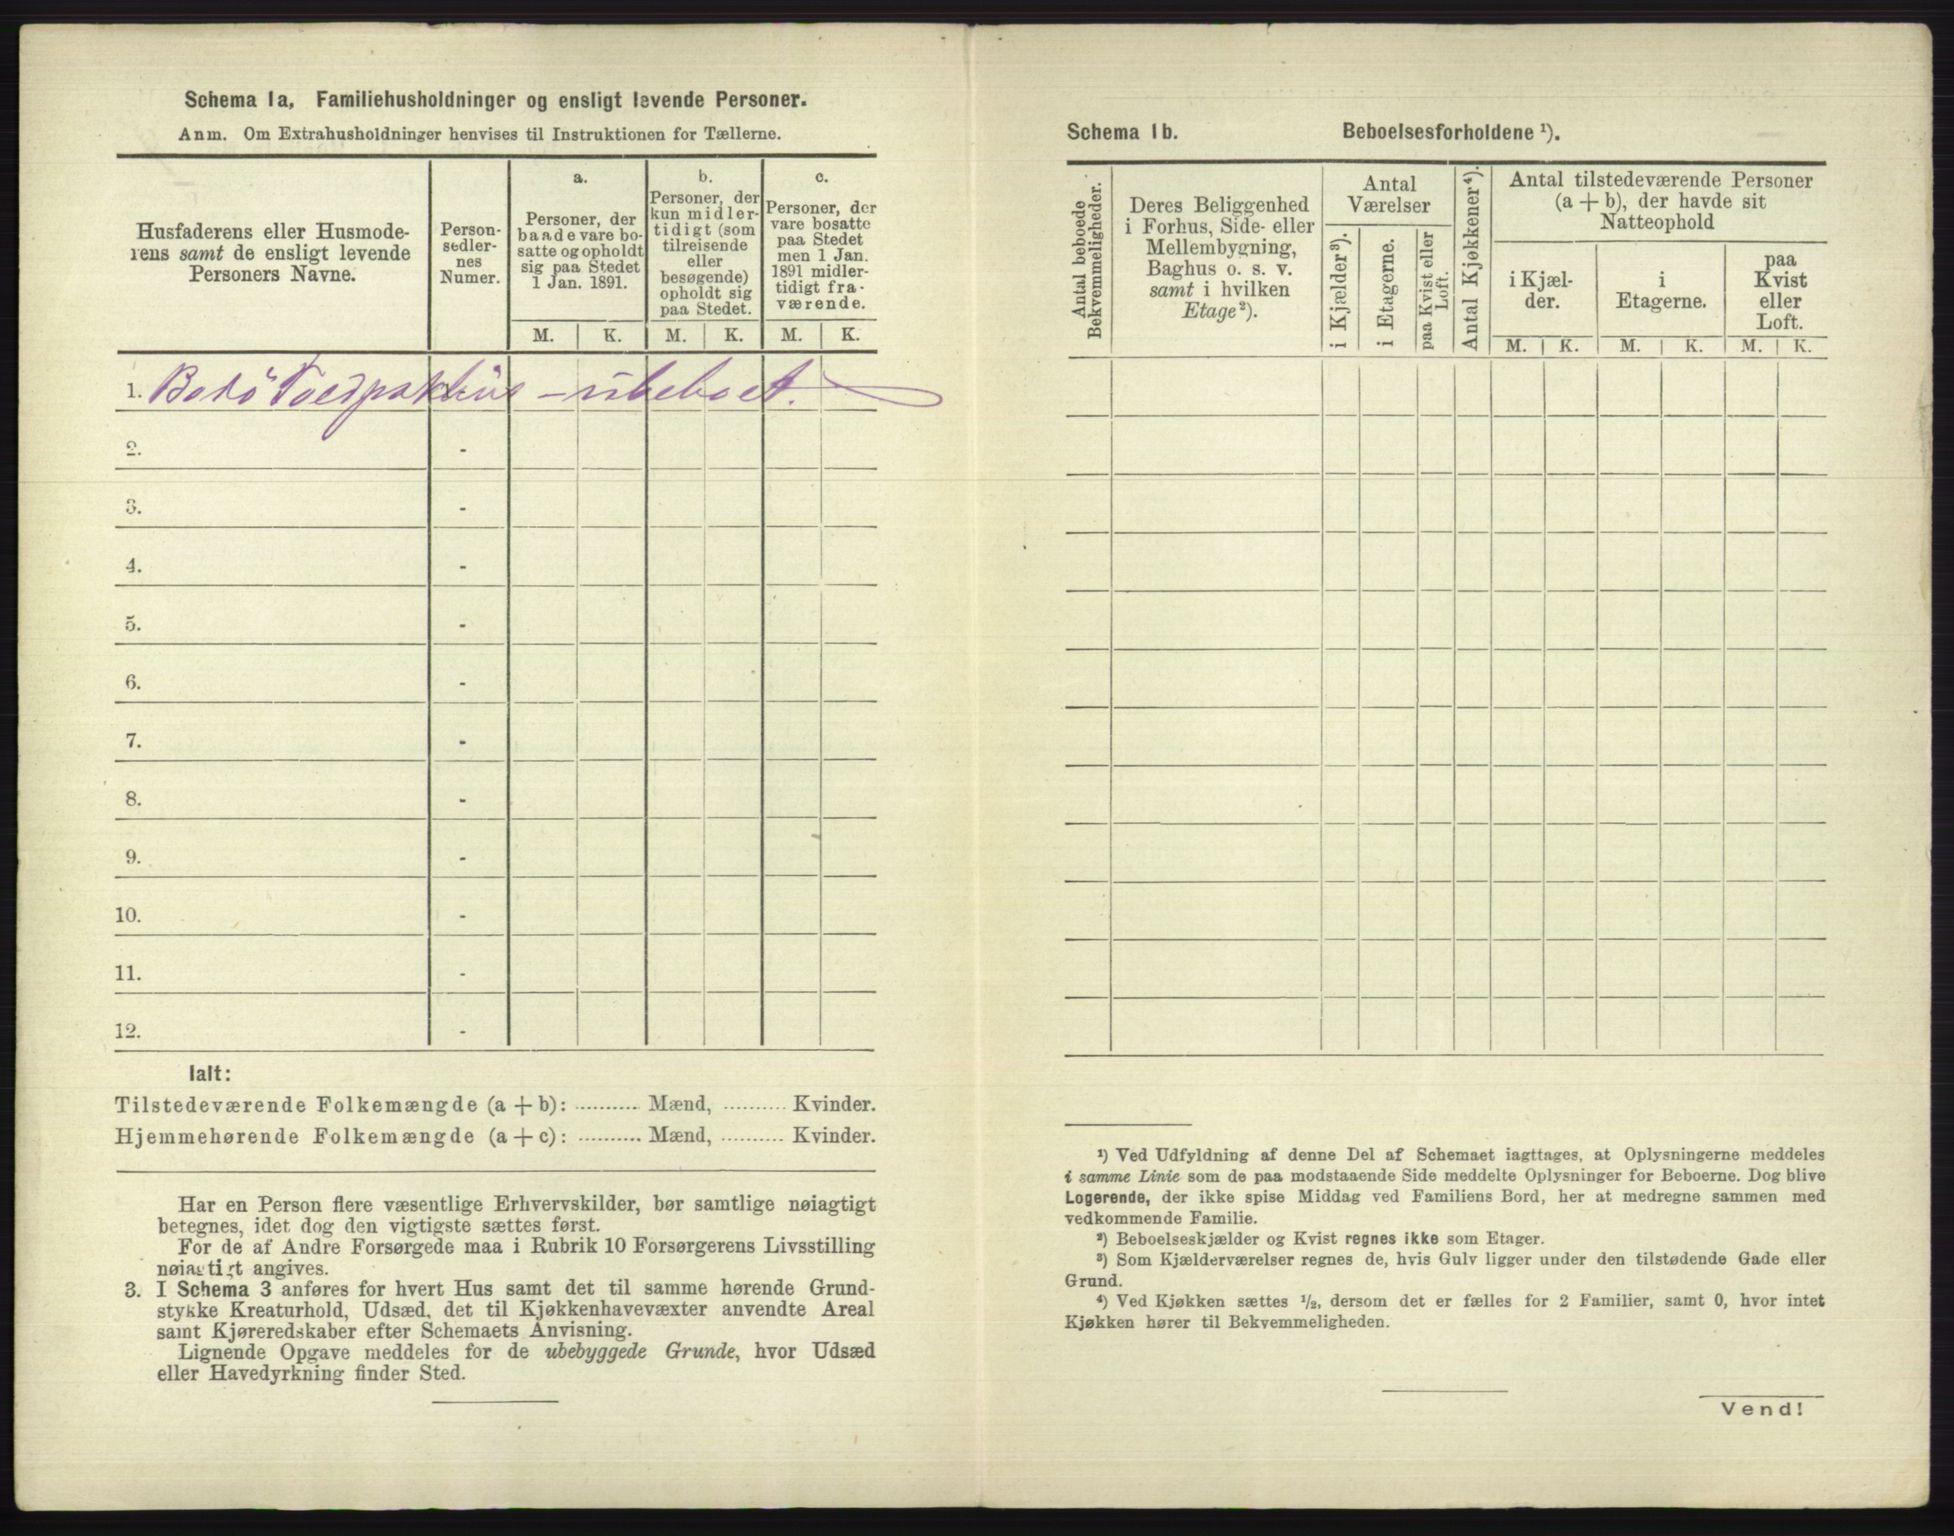 Schema 1a, Familiehusholdninger og ensligt levende Personer.
Anm. Om Extrahusholdninger henvises til Instruktionen for Tællerne.
Husfaderens eller Husmode-
rens samt de ensligt levende
Personers Navne.
Person-
sedler-
nes
Numer.
a.
Personer, der
baade vare bo-
satte og opholdt
sig paa Stedet
1 Jan. 1891.
b.
Personer, der
kun midler-
tidigt (som
tilreisende
eller
besøgende)
opholdt sig
paa Stedet.
c.
Personer, der
vare bosatte
paa Stedet
men 1 Jan.
1891 midler-
tidigt fra-
værende.
M. K. M. K. M. K.
1. Bodö
- ubeboet.
2. -
3. -
4. -
5. -
6. -
7. -
8. -
9. -
10. -
11. -
12. -
Ialt:
Tilstedeværende Folkemængde (a + b): .......... Mænd, .......... Kvinder.
Hjemmehørende Folkemængde (a + c): .......... Mænd, .......... Kvinder.
Har en Person flere væsentlige Erhvervskilder, bør samtlige nøiagtigt
betegnes, idet dog den vigtigste sættes først.
For de af Andre Forsørgede maa i Rubrik 10 Forsørgerens Livsstilling
nøiagtigt angives.
3. I Schema 3 anføres for hvert Hus samt det til samme hørende Grund-
stykke Kreaturhold, Udsæd, det til Kjøkkenhavevæxter anvendte Areal
samt Kjøreredskaber efter Schemaets Anvisning.
Lignende Opgave meddeles for de ubebyggede Grunde, hvor Udsæd
eller Havedyrkning finder Sted.
Schema 1b. Beboelsesforholdene ¹).
Antal beboede
Bekvemmeligheder.
Deres Beliggenhed
i Forhus, Side- eller
Mellembygning,
Baghus o. s. v.
samt i hvilken
Etage ²).
Antal
Værelser
i Kjælder ³).
i Etagerne.
paa Kvist eller
Loft.
Antal Kjøkkener ⁴).
Antal tilstedeværende Personer
(a + b), der havde sit
Natteophold
i Kjæl-
der.
i
Etagerne.
paa
Kvist
eller
Loft.
M. K. M. K. M. K.
¹) Ved Udfyldning af denne Del af Schemaet iagttages, at Oplysningerne meddeles
i samme Linie som de paa modstaaende Side meddelte Oplysninger for Beboerne. Dog blive
Logerende, der ikke spise Middag ved Familiens Bord, her at medregne sammen med
vedkommende Familie.
²) Beboelseskjælder og Kvist regnes ikke som Etager.
³) Som Kjælderværelser regnes de, hvis Gulv ligger under den tilstødende Gade eller
Grund.
⁴) Ved Kjøkken sættes ½, dersom det er fælles for 2 Familier, samt 0, hvor intet
Kjøkken hører til Bekvemmeligheden.
Vend!